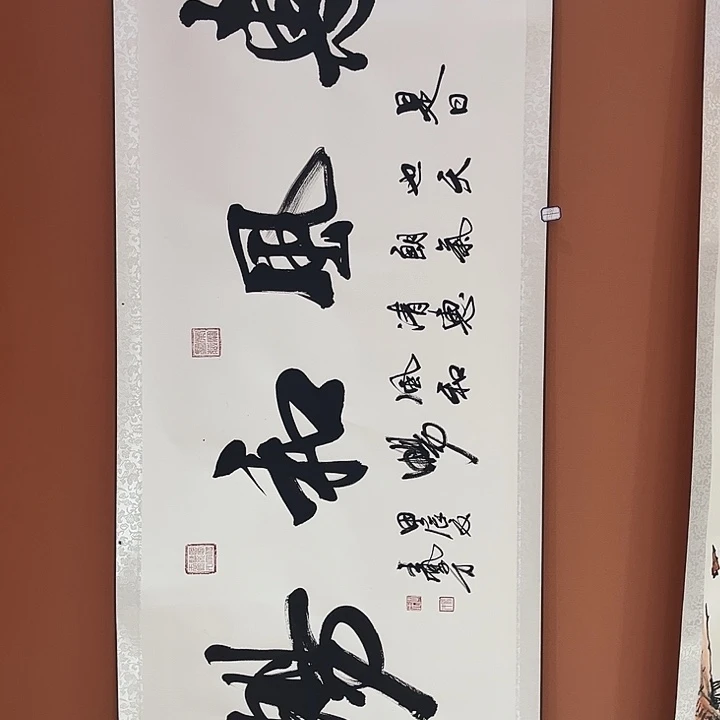 惠風和暢
是日
也天
朗氣
清惠
風和
暢
甲辰夏